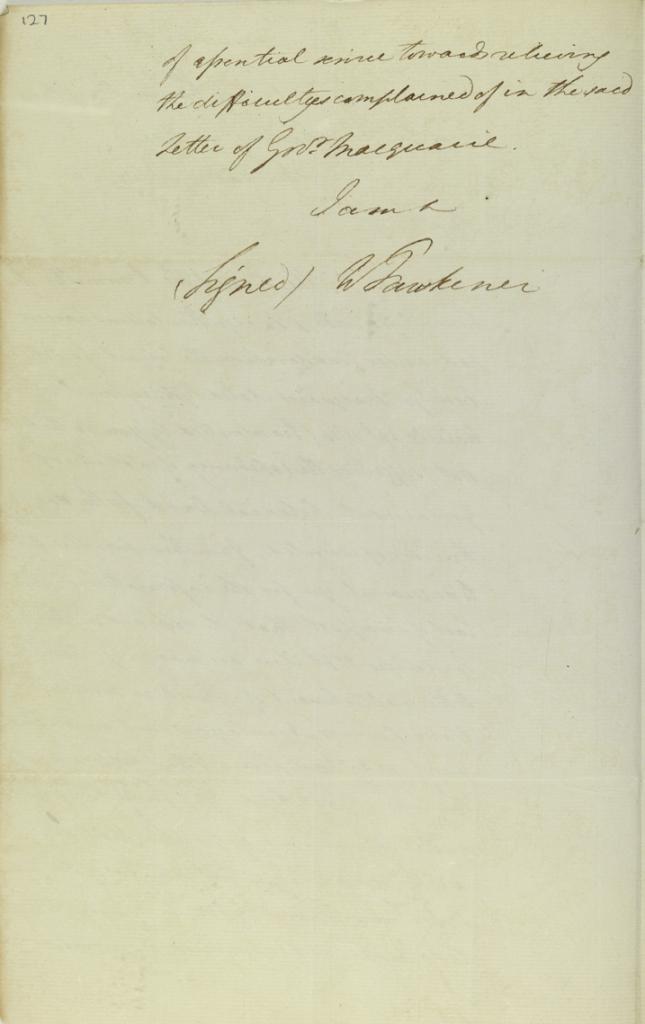 127
of essential service towards relieving
the difficultys complained of in the said
Letter of Govr. Macquarie.
I am &
(Signed) W Fawkener